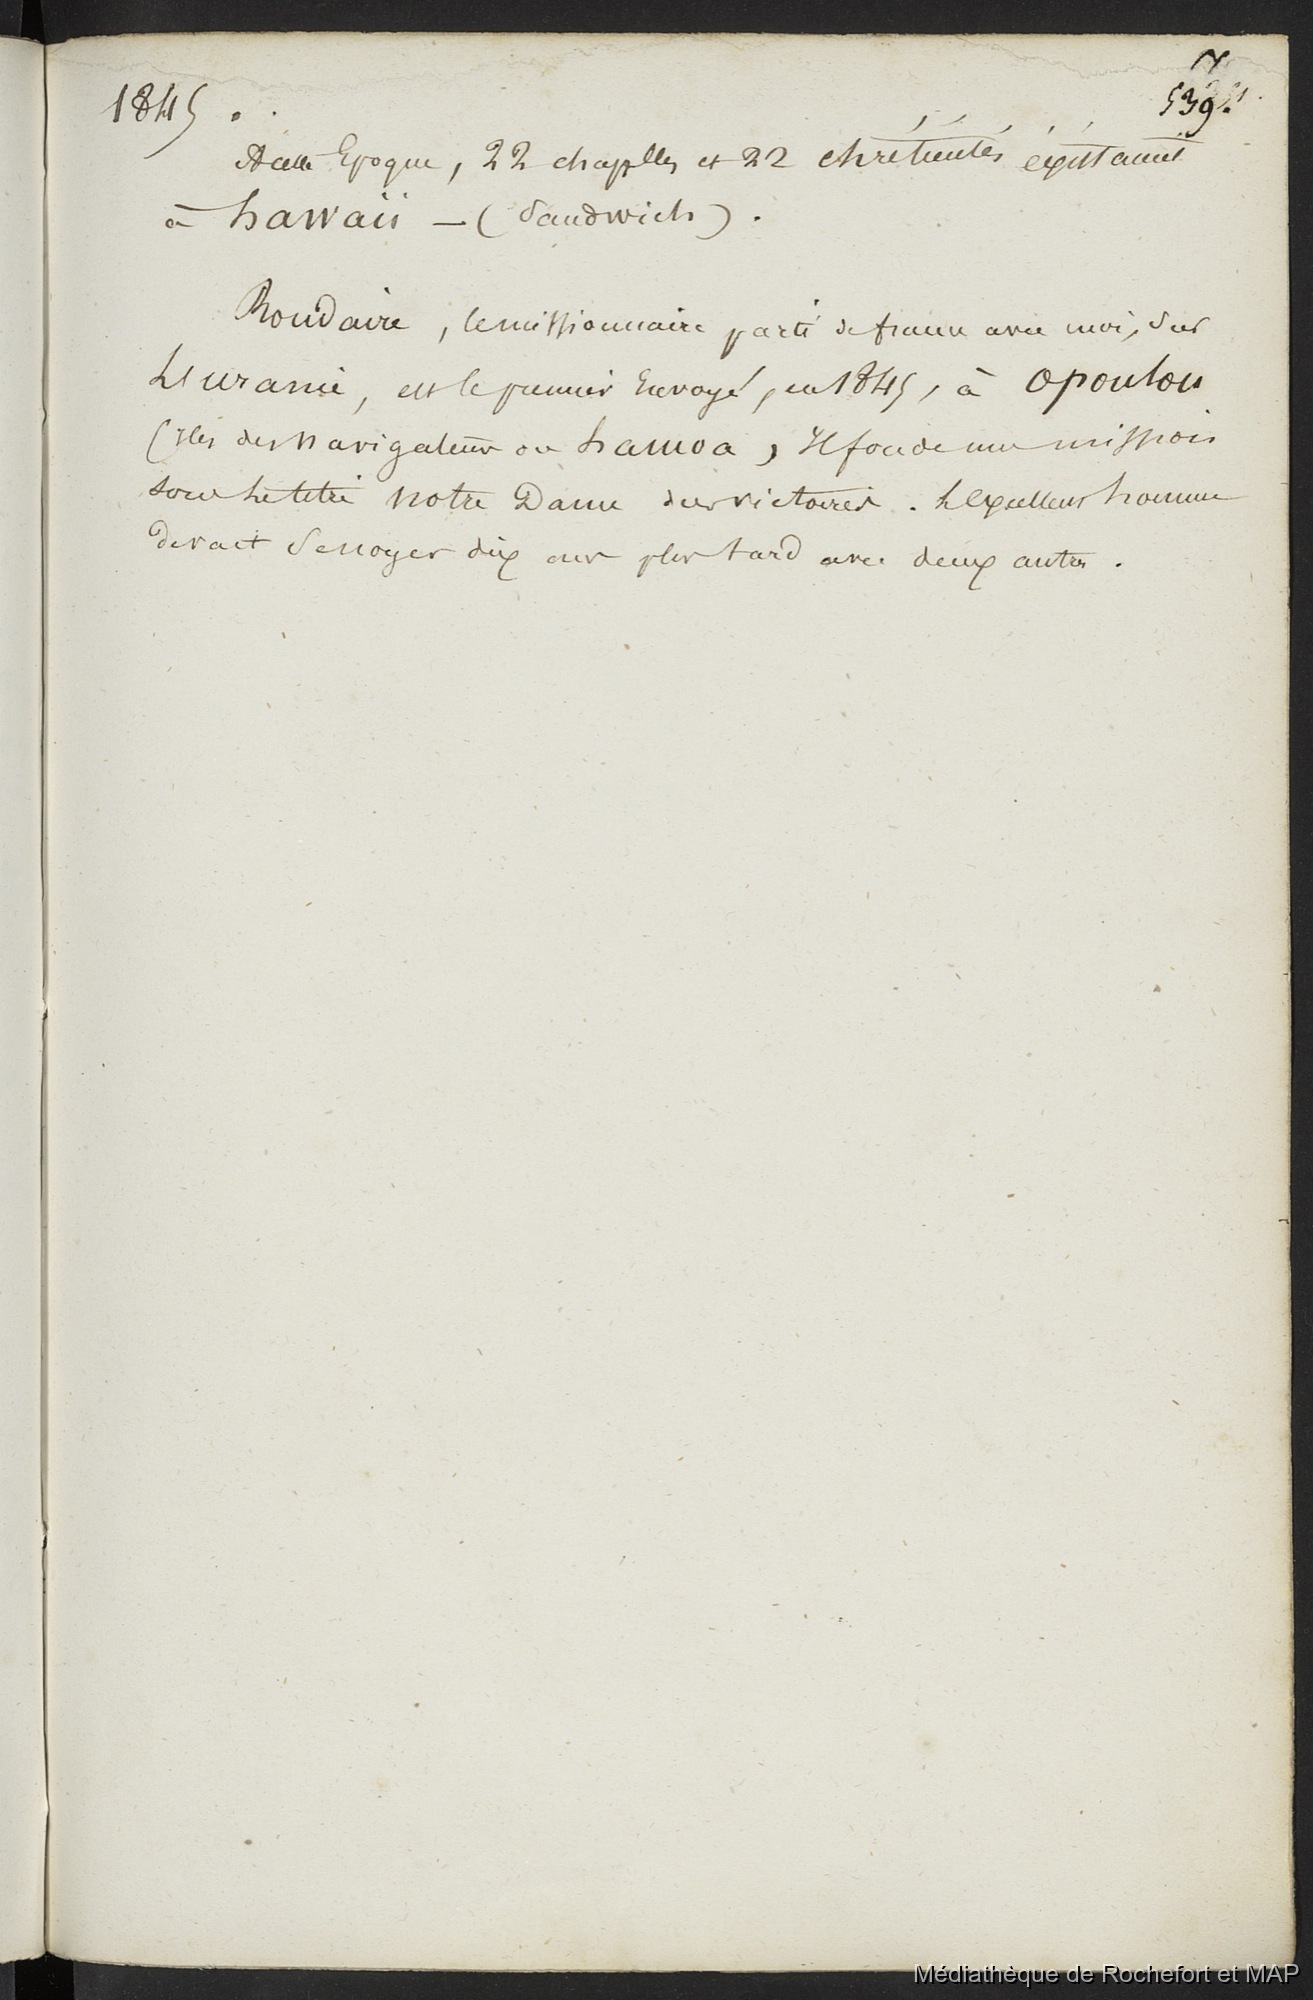 1845.
539.
A cette Epoque, 22 chaplles et 22 chrétientés éxistaient
à hawaii — (Sandwich).
Roudaire, le missionnaire parti de france avec moi, sur
L'uranie, est le premier Envoyé, en 1845, à opoulou
(Iles des navigateur ou hamoa, Il fonde une mission
sous le titre Notre Dame des victoires. L'excellent homme
devait se noyer dix ans plus tard avec deux autres.
Médiathèque de Rochefort et MAP